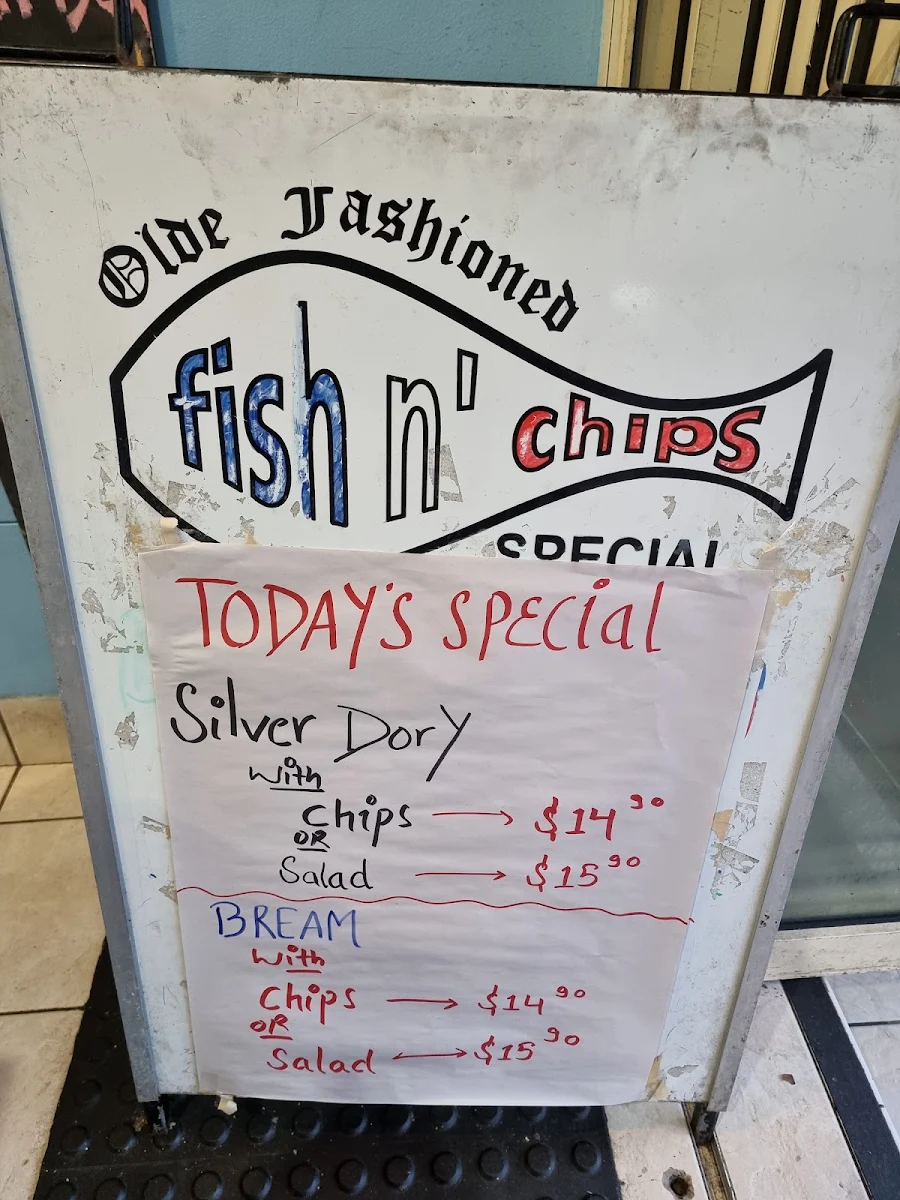 Olde Fashioned
fish n' chips
SPECIAL
TODAY'S SPECial
Silver Dory
with
Chips → $14 90
OR
Salad → $15 90
BREAM
with
Chips → $14 90
OR
Salad ↔ $15 90